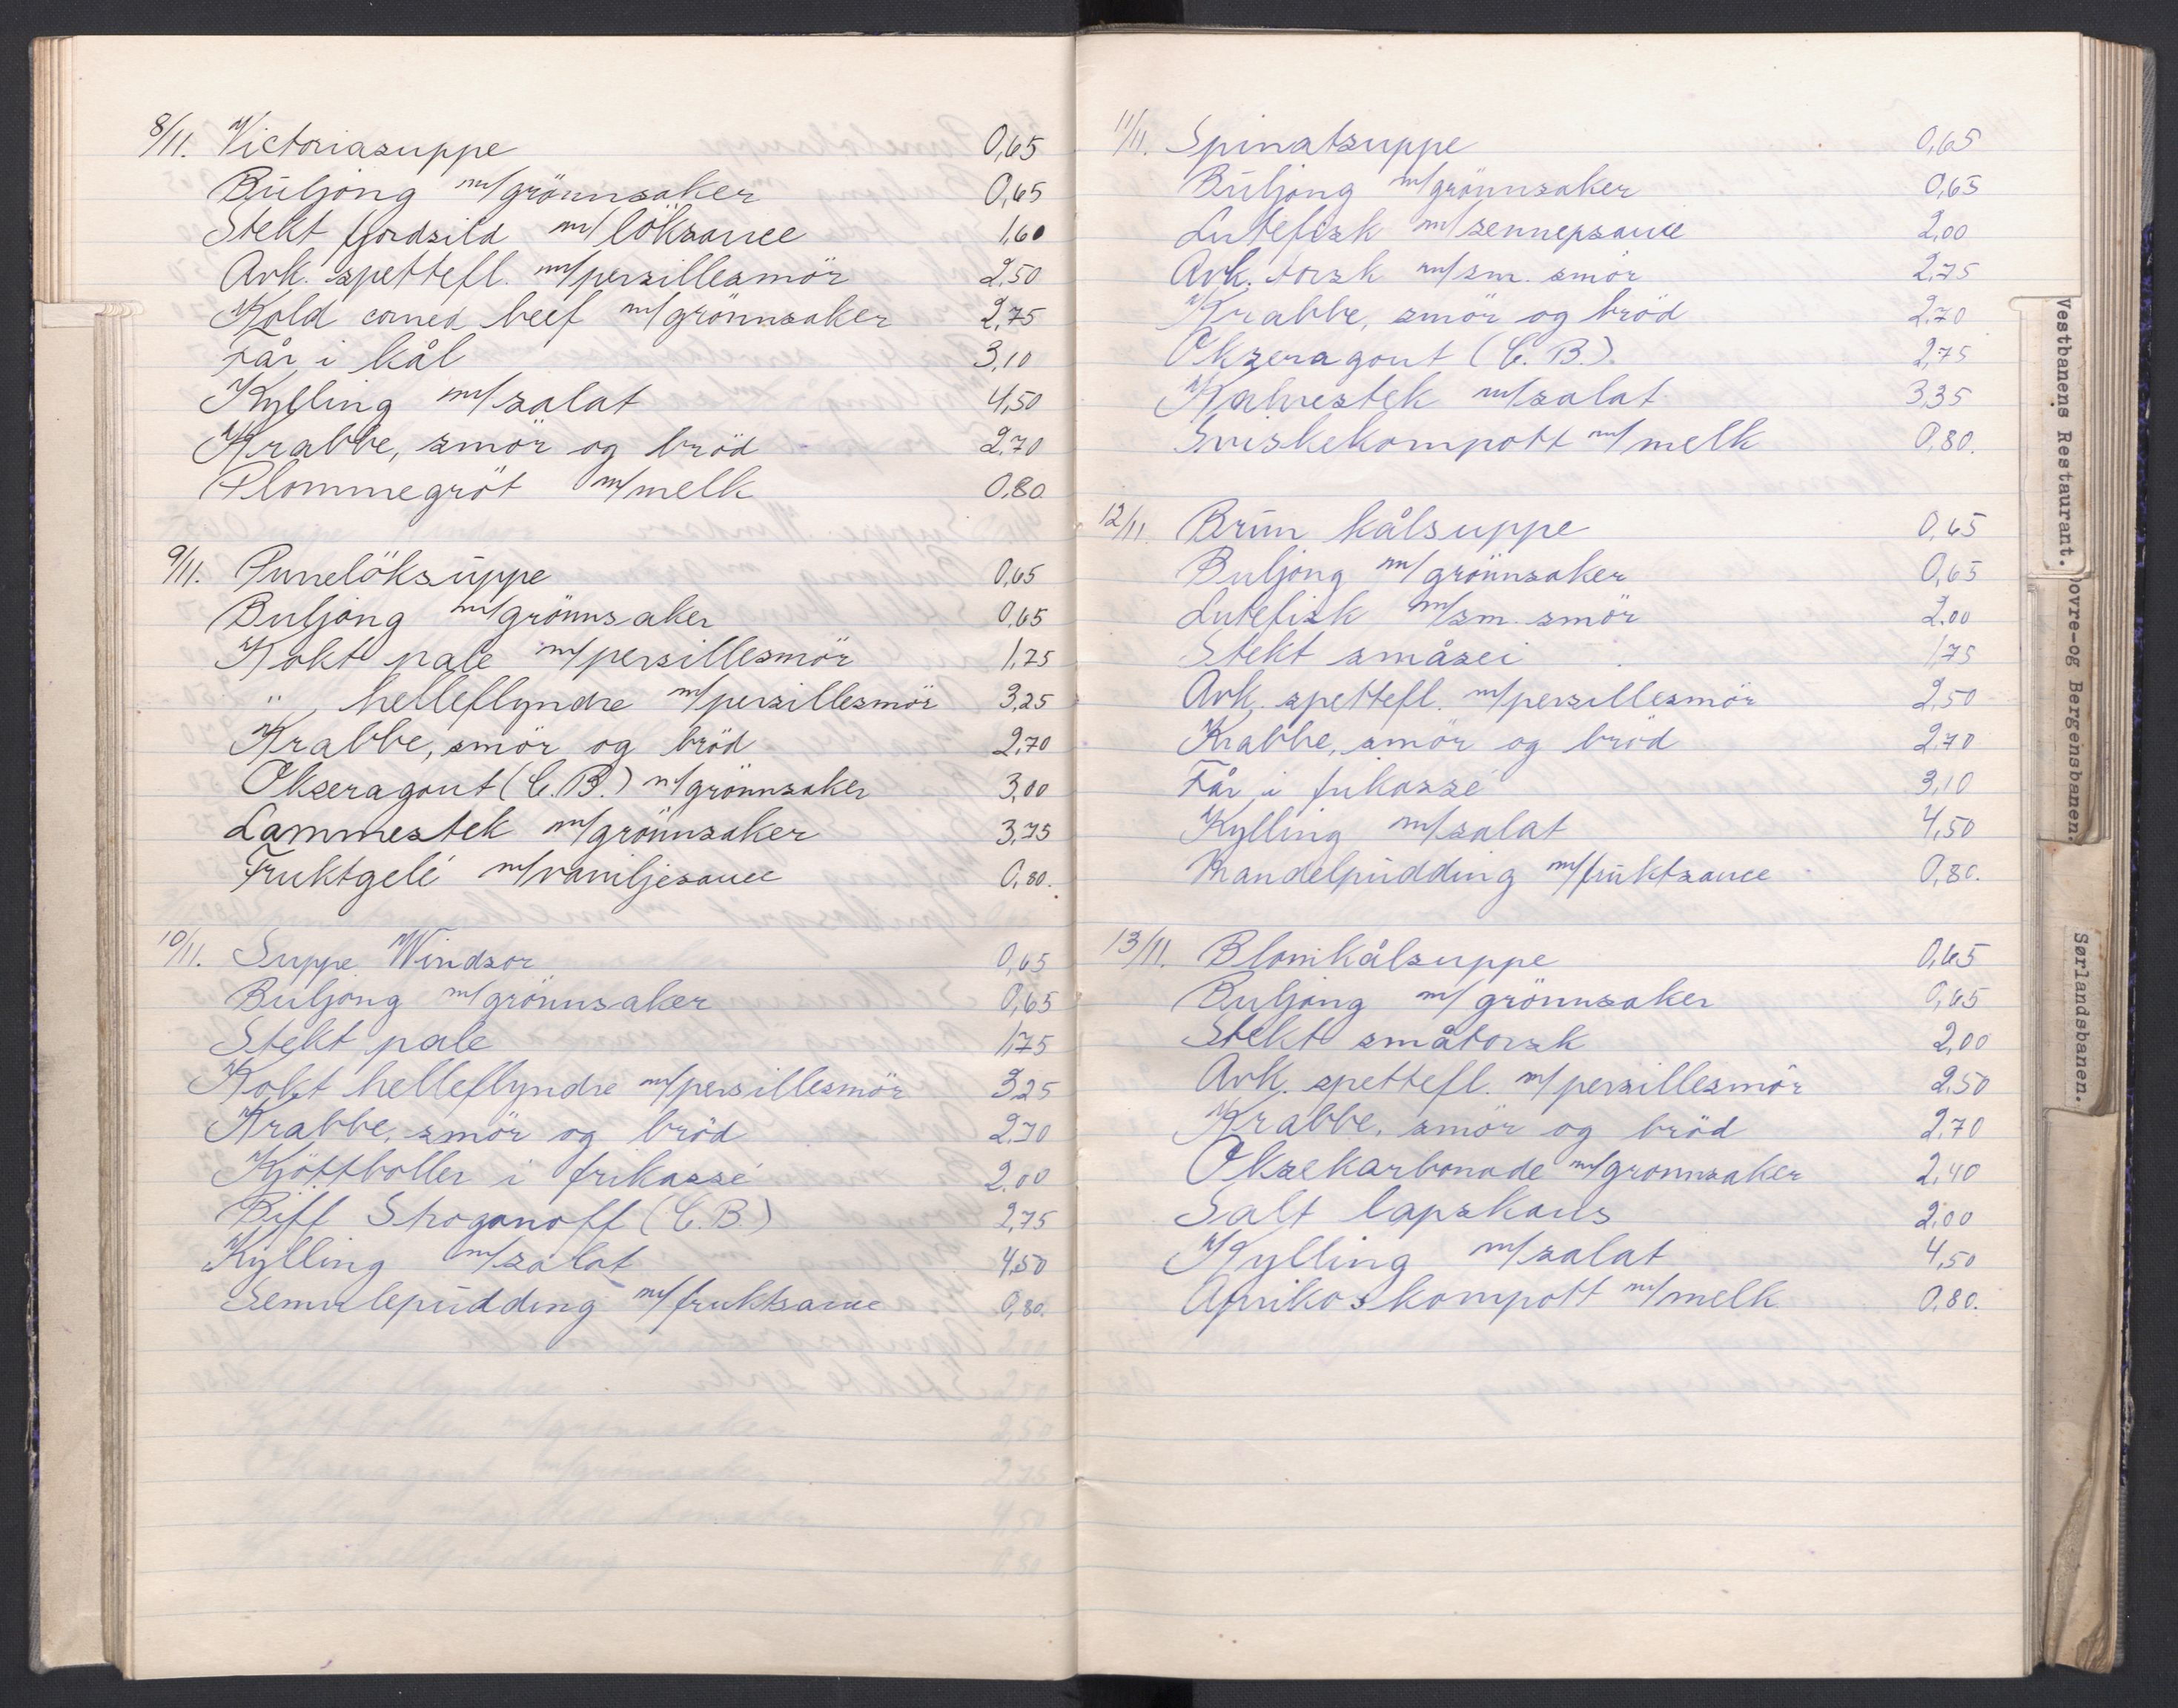 8/11. Victoriasuppe 0,65
Buljong m/grönnsaker 0,65
Stekt fjordsild m/löksauce 1,60
Avk. spettefl. m/persillesmör 2,50
Kold corned beef m/grönnsaker 2,75
Får i kål 3,10
Kylling m/salat 4,50
Krabbe, smör og bröd 2,70
Plommegröt m/melk 0,80
9/11. Purrelöksuppe 0,65
Buljong m/grönnsaker 0,65
Kokt pale m/persillesmör 1,75
" helleflyndre m/persillesmör 3,25
Krabbe, smör og bröd 2,70
Okseragout (C.B.) m/grönnsaker 3,00
Lammestek m/grönnsaker 3,75
Fruktgelé m/vaniljesauce 0,80.
10/11. Suppe Windsor 0,65
Buljong m/grönnsaker 0,65
Stekt pale 1,75
Kokt helleflyndre m/persillesmör 3,25
Krabbe, smör og bröd 2,70
Kjöttboller i frikassé 2,00
Biff Stroganoff (C.B.) 2,75
Kylling m/salat 4,50
Semulepudding m/fruktsauce 0,80.
11/11. Spinatsuppe 0,65
Buljong m/grönnsaker 0,65
Lutefisk m/sennepsauce 2,00
Avk. torsk m/sm. smör 2,75
Krabbe, smör og bröd 2,70
Okseragout (C.B.). 2,75
Kalvestek m/salat 3,35
Sviskekompott m/melk 0,80.
12/11. Brun kålsuppe 0,65
Buljong m/grönnsaker 0,65
Lutefisk m/sm. smör 2,00
Stekt småsei 1,75
Avk. spettefl. m/persillesmör 2,50
Krabbe, smör og bröd 2,70
Får i frikassé 3,10
Kylling m/salat 4,50
Mandelpudding m/fruktsauce 0,80.
13/11. Blomkålsuppe 0,65
Buljong m/grönnsaker 0,65
Stekt småtorsk 2,00
Avk. spettefl. m/persillesmör 2,50
Krabbe, smör og bröd 2,70
Oksekarbonade m/grønnsaker 2,40
Salt lapskaus 2,00
Kylling m/salat 4,50
Aprikoskompott m/melk 0,80.
Vestbanens Restaurant.
ovre-og Bergensbanen.
Sørlandsbanen.